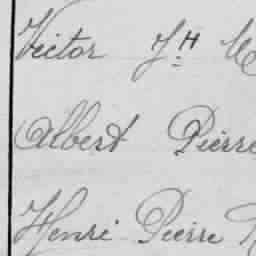 Victor J.H
Albert Pierre
Henri Pierre